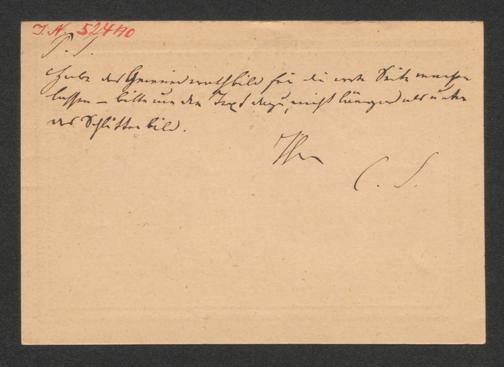 I. N. 52440
P. T.
Habe das Gemeinderathsbild für die erste Seite machen
lassen – bitte um den Text dazu, nicht länger als unter
das Schlittenbild.
Ihr
C. S.